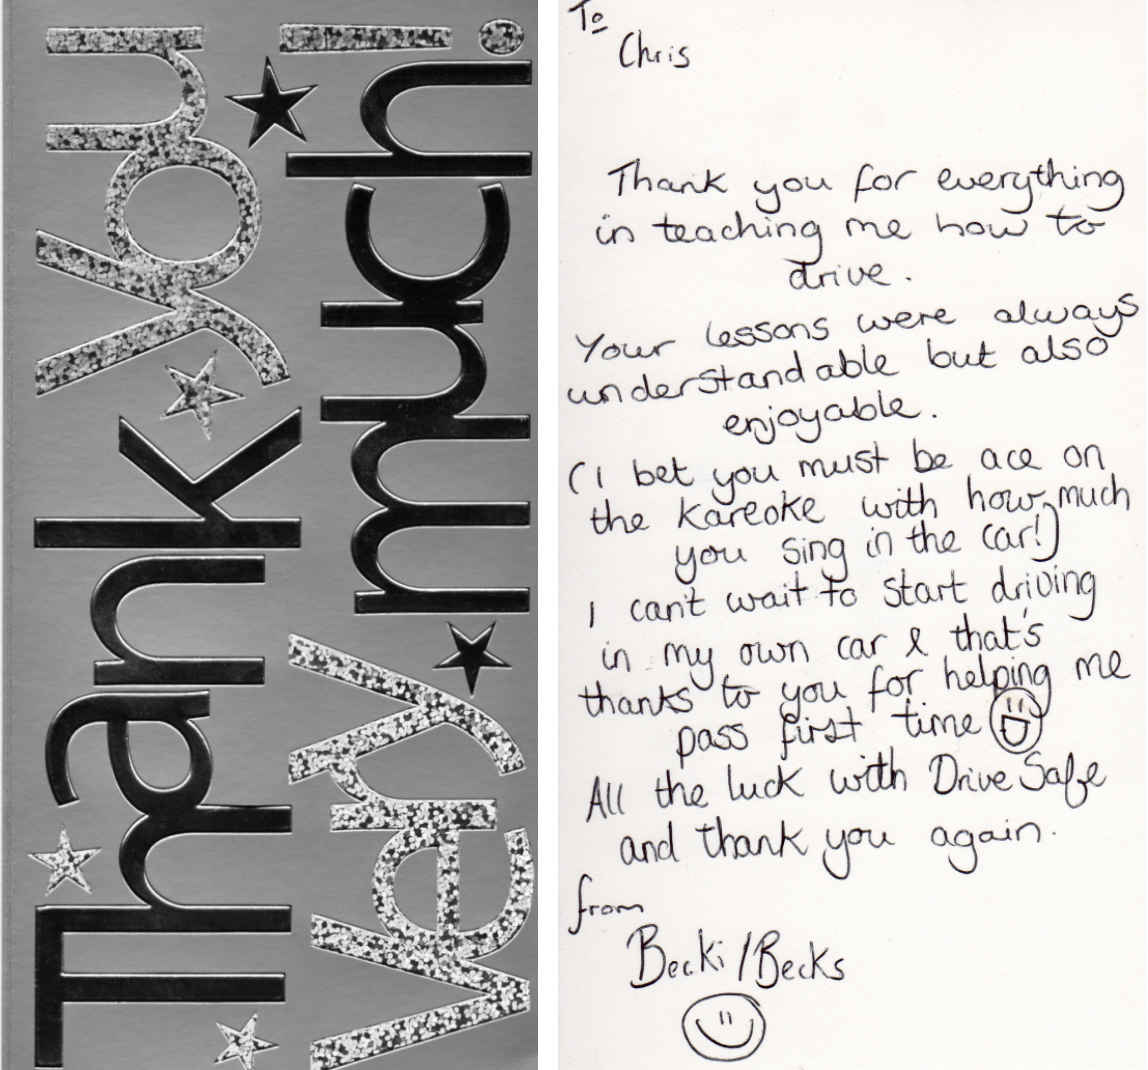 Thank you
very much!
To
Chris
Thank you for everything
in teaching me how to
drive.
Your lessons were always
understandable but also
enjoyable.
(I bet you must be ace on
the kareoke with how much
you sing in the car!)
I can't wait to start driving
in my own car & that's
thanks to you for helping me
pass first time
All the luck with Drive Safe
and thank you again.
from
Becki/Becks